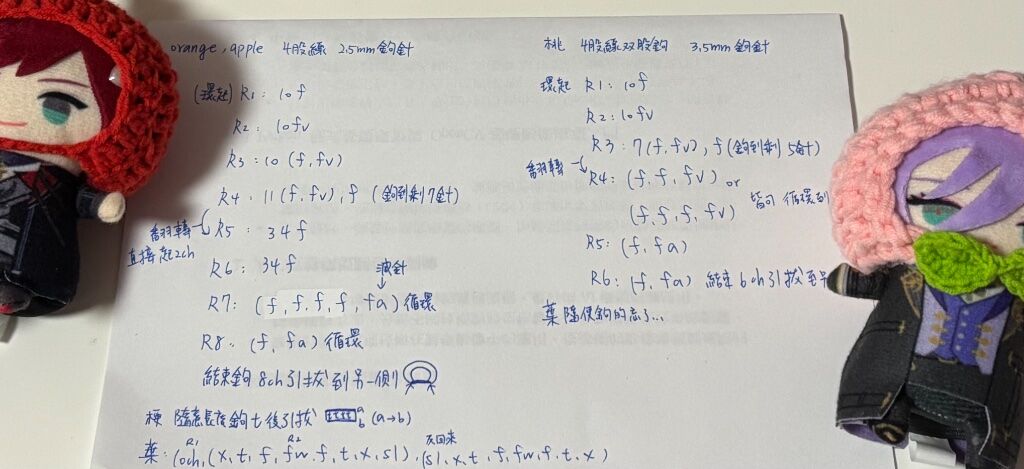 orange, apple 4股線 2.5mm鉤針
(環起) R1: 10f
R2: 10fv
R3: 10 (f, fv)
R4: 11 (f, fv), f (鉤到剩7針)
翻轉
直接起2ch
R5: 34f
R6: 34f
減針
R7: (f, f, f, f, fa) 循環
R8: (f, fa) 循環
結束鉤 8ch 引拔到另一側
梗 隨意長度鉤 t 後引拔 a b (a→b)
R1 R2
葉: 10ch, (x, t, f, fw, f, t, x, sl),
反回來
(sl, x, t, f, fw, f, t, x)
桃 4股線双股鉤 3.5mm鉤針
環起 R1: 10f
R2: 10fv
R3: 7(f, fv), f (鉤到剩5針)
翻轉
R4: (f, f, fv) or
(f, f, f, fv) 皆可 循環到
R5: (f, fa)
R6: (f, fa) 結束 6ch 引拔至另
葉 隨便鉤的忘了...